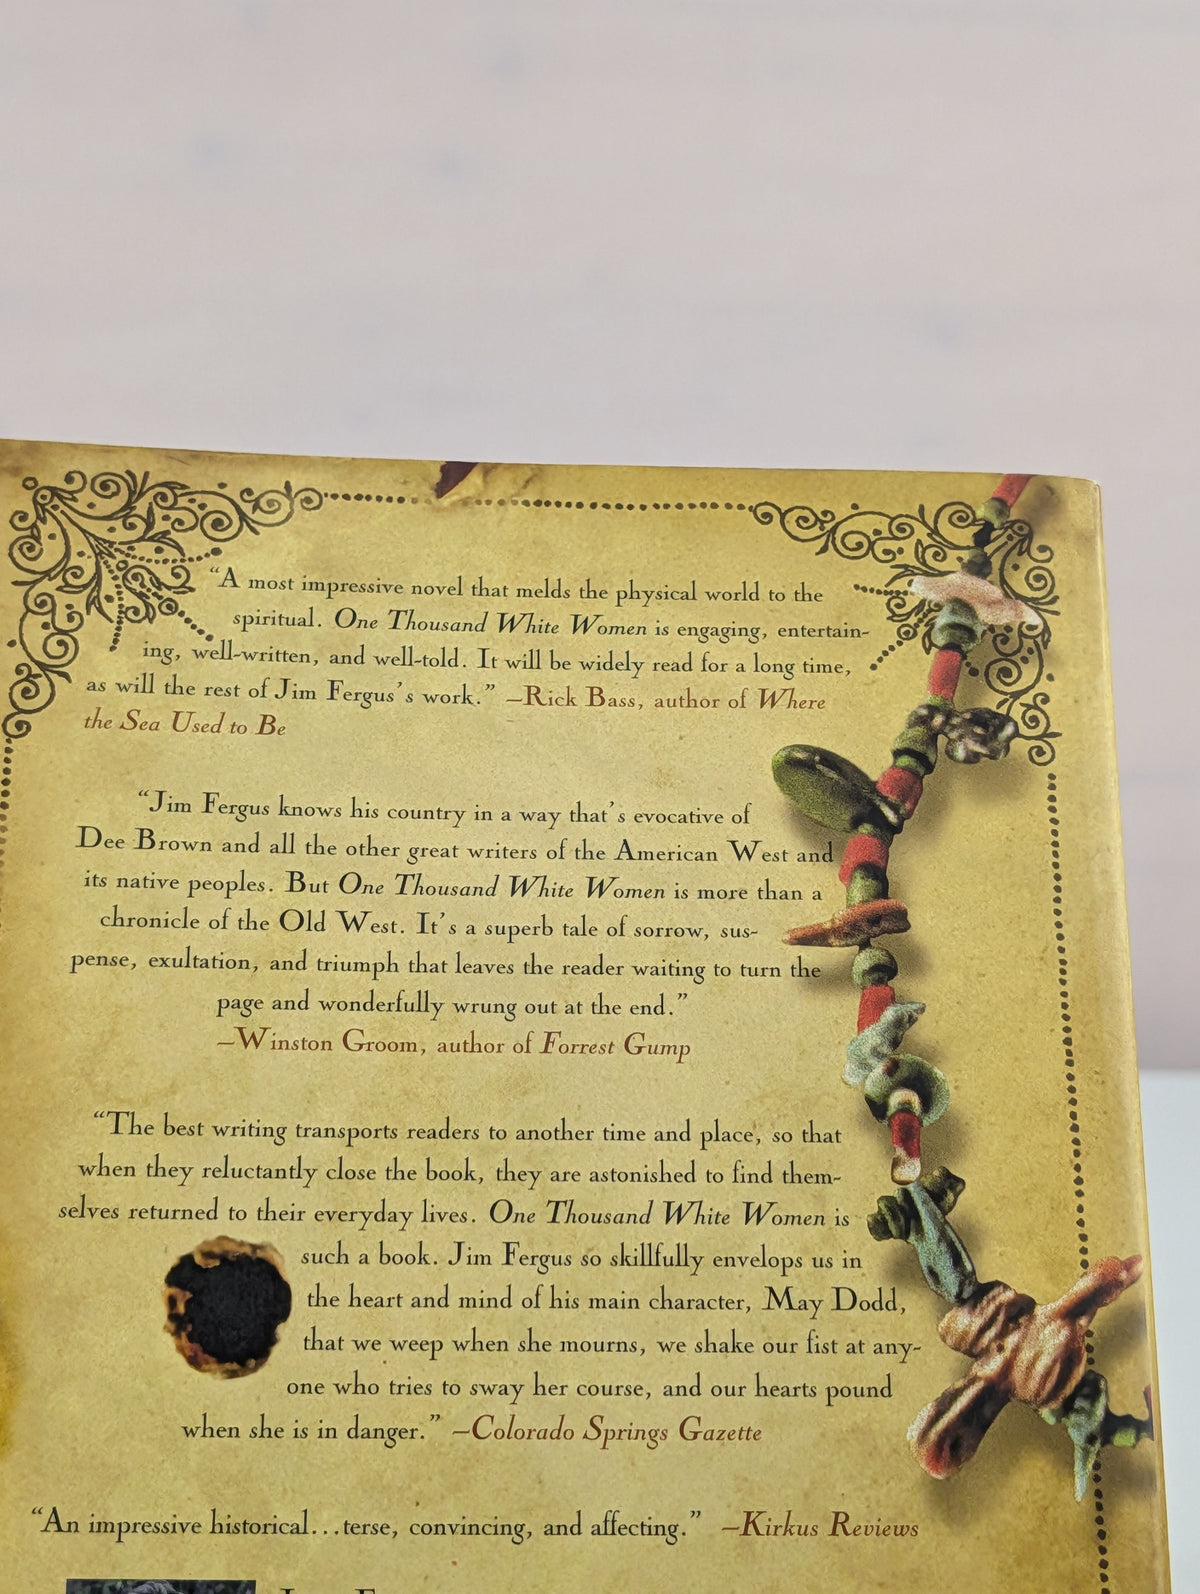 “A most impressive novel that melds the physical world to the
spiritual. One Thousand White Women is engaging, entertain-
ing, well-written, and well-told. It will be widely read for a long time,
as will the rest of Jim Fergus’s work.” –Rick Bass, author of Where
the Sea Used to Be
“Jim Fergus knows his country in a way that’s evocative of
Dee Brown and all the other great writers of the American West and
its native peoples. But One Thousand White Women is more than a
chronicle of the Old West. It’s a superb tale of sorrow, sus-
pense, exultation, and triumph that leaves the reader waiting to turn the
page and wonderfully wrung out at the end.”
–Winston Groom, author of Forrest Gump
“The best writing transports readers to another time and place, so that
when they reluctantly close the book, they are astonished to find them-
selves returned to their everyday lives. One Thousand White Women is
such a book. Jim Fergus so skillfully envelops us in
the heart and mind of his main character, May Dodd,
that we weep when she mourns, we shake our fist at any-
one who tries to sway her course, and our hearts pound
when she is in danger.” –Colorado Springs Gazette
“An impressive historical...terse, convincing, and affecting.” –Kirkus Reviews